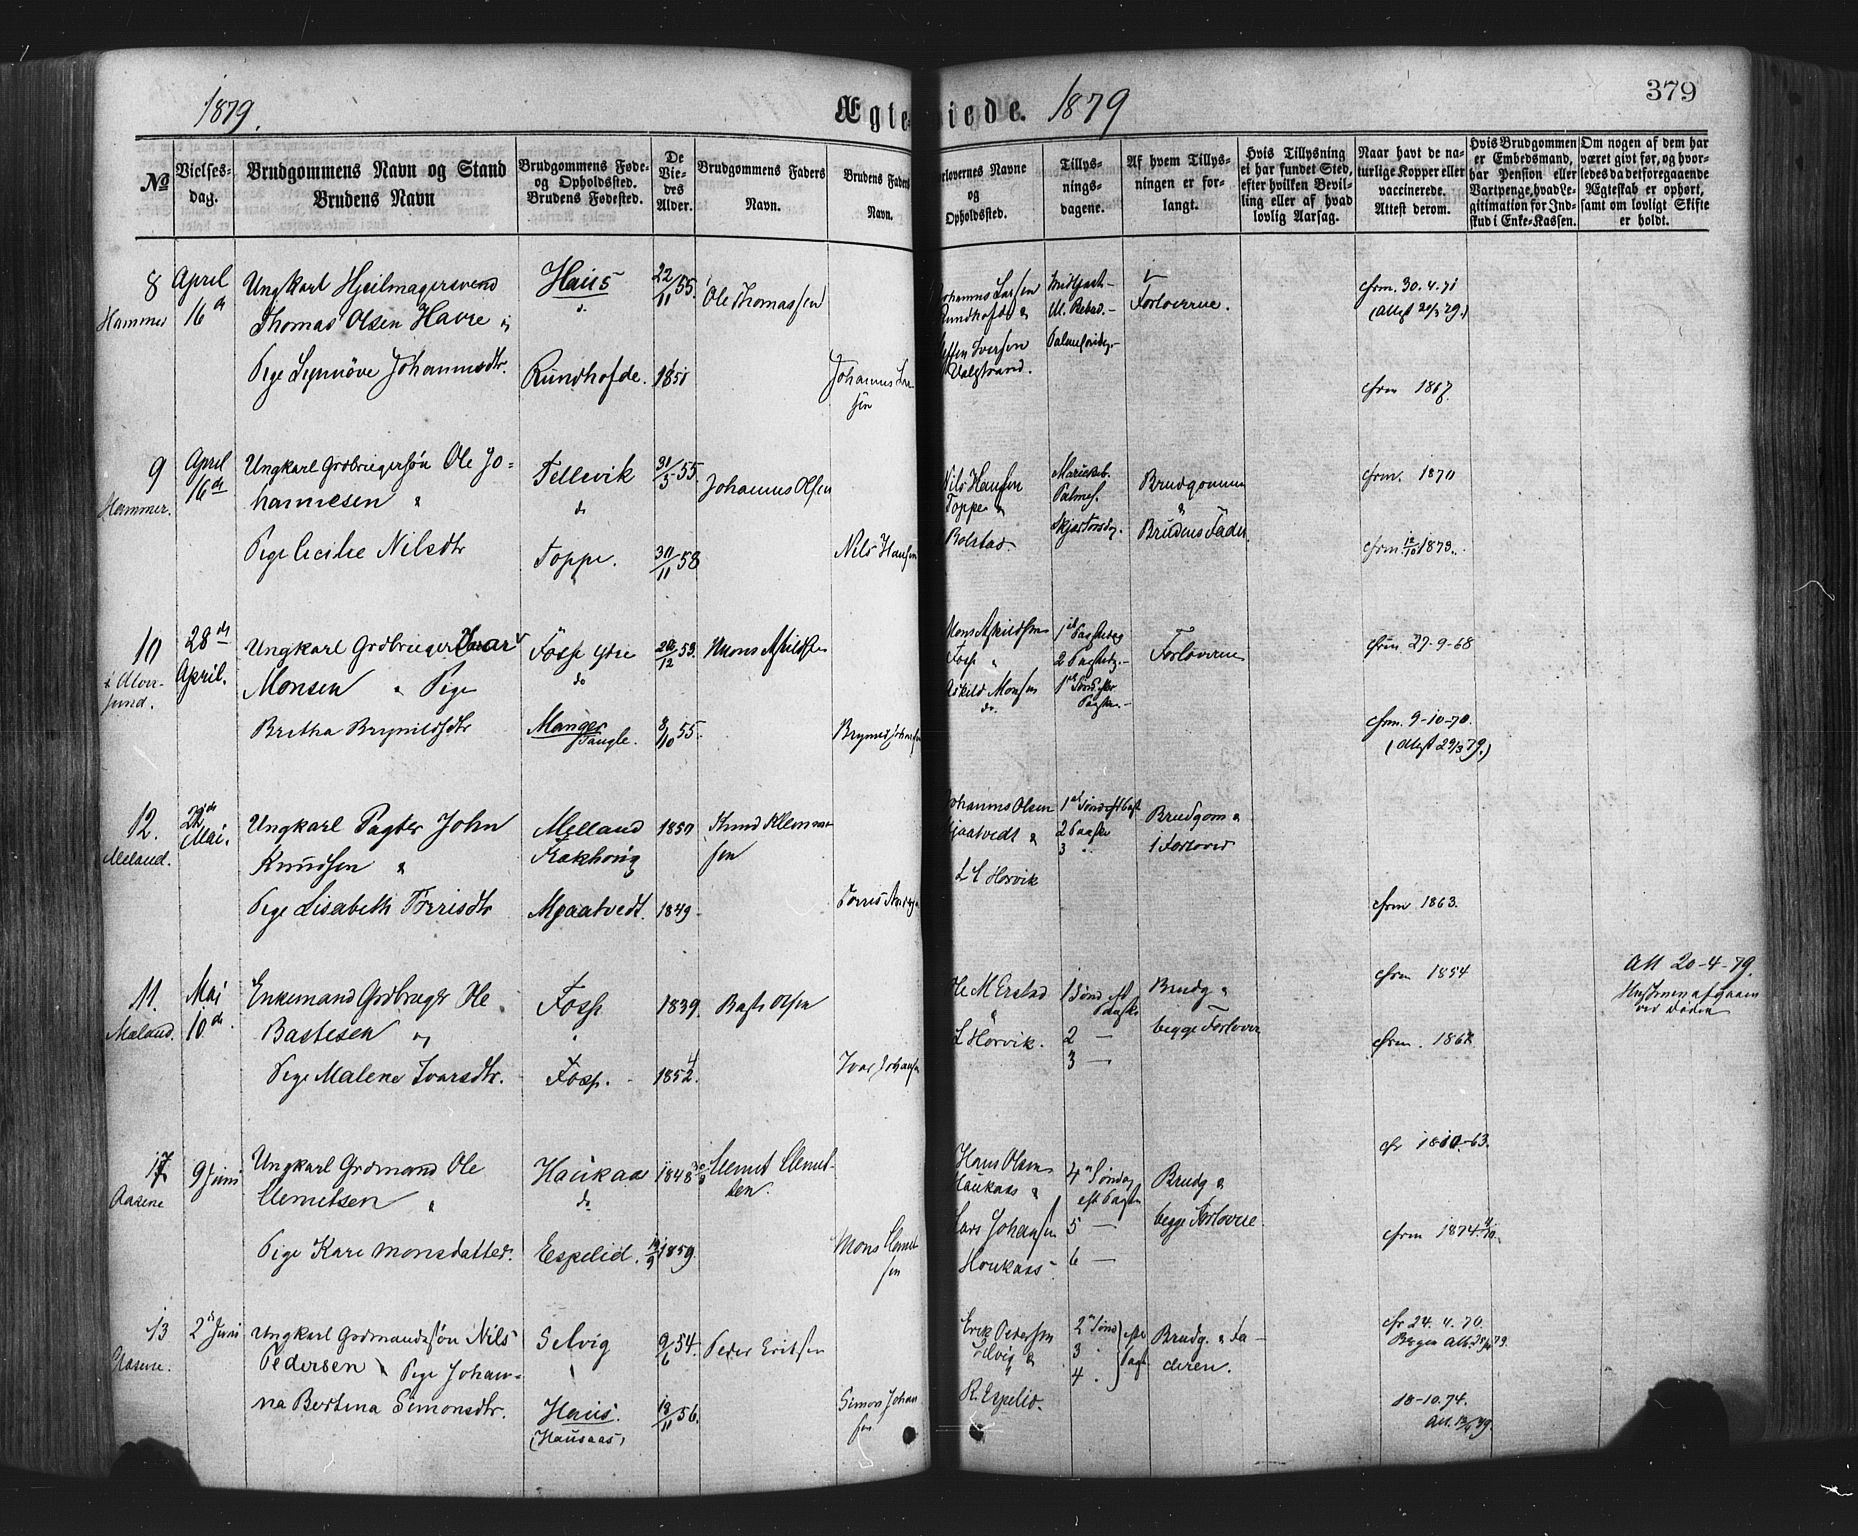 1879.
Ægteviede. 1879
379
No
Vielses-
dag.
Brudgommens Navn og Stand
Brudens Navn
Brudgommens Føde-
og Opholdssted.
Brudens Fødested.
De
Vie-
des
Alder.
Brudgommens Faders
Navn.
Brudens Faders
Navn.
Forlovernes Navne
og
Opholdssted.
Tillys-
nings-
dagene.
Af hvem Tillys-
ningen er for-
langt.
Hvis Tillysning
ei har fundet Sted,
efter hvilken Bevil-
ling eller af hvad
lovlig Aarsag.
Naar havt de na-
turlige Kopper eller
vaccinerede.
Attest derom.
Hvis Brudgommen
er Embedsmand,
har Pension eller
Vartpenge, hvad Le-
gitimation for Ind-
skud i Enke-Kassen.
Om nogen af dem har
været givt før, og hvor-
ledes da det foregaaende
Ægteskab er ophørt,
samt om lovligt Skifte
er holdt.
8
Hammer
April
16de
Ungkarl Hjulmagersvend
Thomas Olsen Havre og
Pige Synnöve Johannesdtr.
Haus
do
Rundhofde.
22/11 55.
1851
Ole Thomassen
Johannes Lar-
sen
Johannes Larsen
Rundhofde &
Steffen Iversen
Palmesöndg.
Forloverne.
cfrm. 30.4.71
cfrm 1867.
9
Hammer.
April
16de
Ungkarl Grdbrugersön Ole Jo-
hannesen &
Pige Cecilie Nilsdtr
Tellevik
do
Toppe.
31/5 55.
30/11 58
Johannes Olsen
Nils Hansen
Nils Hansen
Toppe &
Bolstad.
Palmes.
Skjærtorsdg.
Brudgommen
&
Brudens Fader
cfrm. 1870
cfrm. 12/10 1873.
10
i Alver-
sund.
28de
April.
Ungkarl Grdbruger Ivar
Monsen & Pige
Britha Brynildsdtr
Fosse ytre
do
Manger
Tangle.
20/12 53.
8/10 55.
Mons Askildsen
Mons Askildsen
Fosse &
Askild Monsen
do.
1ste Paaskedag
2 Paaskedg.
1ste Sönd efter
Paaske.
Forloverne
cfrm 27-9-68
cfrm. 9-10-70.
(Attest 29/3 79.)
12.
Meland.
22de
Mai.
Ungkarl Pagter John
Knudsen &
Pige Lisabeth Torrisdtr
Melland
Frakhoug
Mjaatvedt.
1850
1849
Knud Klemmet-
sen
Johannes Olsen
Mjaatvedt &
L L Horvik
2 Paaske
3 "
Brudgom &
1 Forlover
cfrm 1863.
11.
Meland.
Mai
10de
Enkemand Grdbruger Ole
Bastesen &
Pige Malene Ivarsdtr.
Fosse
Fosse.
1839.
1852.
Baste Olsen
Ivar Johansen
Ole M Erstad
&
L Horvik.
1 Sönd eft
Paaske
2 —
3 —
Brudg &
begge Forlover
cfrm 1854
cfrm. 1867
Att 20-4-79.
Hustruen afgaaen
ved Döden
17
Aasene
9 Juni
Ungkarl Grdmand Ole
Clemetsen &
Pige Kari Monsdatter.
Haukaas
do
Espelid.
1848
1859.
Clemet Clemet-
sen.
Mons Clemet-
sen
Hans Olsen
Haukaas &
Lars Johansen
Houkaas
4de Söndag
eft Paaske
5 —
6 —
Brudg &
begge Forlovere
cfrm 1874
13
Aasene.
2 Juni
Ungkarl Grdmandssön Nils
Pedersen & Pige Johan-
na Bertina Simonsdtr.
Selvig
Haus.
(Hausaas)
9/6 54.
18/11 56.
Peder Eriksen
Simon Johan-
sen
Erik Pedersen
Selvig &
R. Espelid.
2 Sönd
3 "
4 "
efter
Paaske
Brudg. & Fa-
deren.
cfr 24.4.70.
18-10.74.